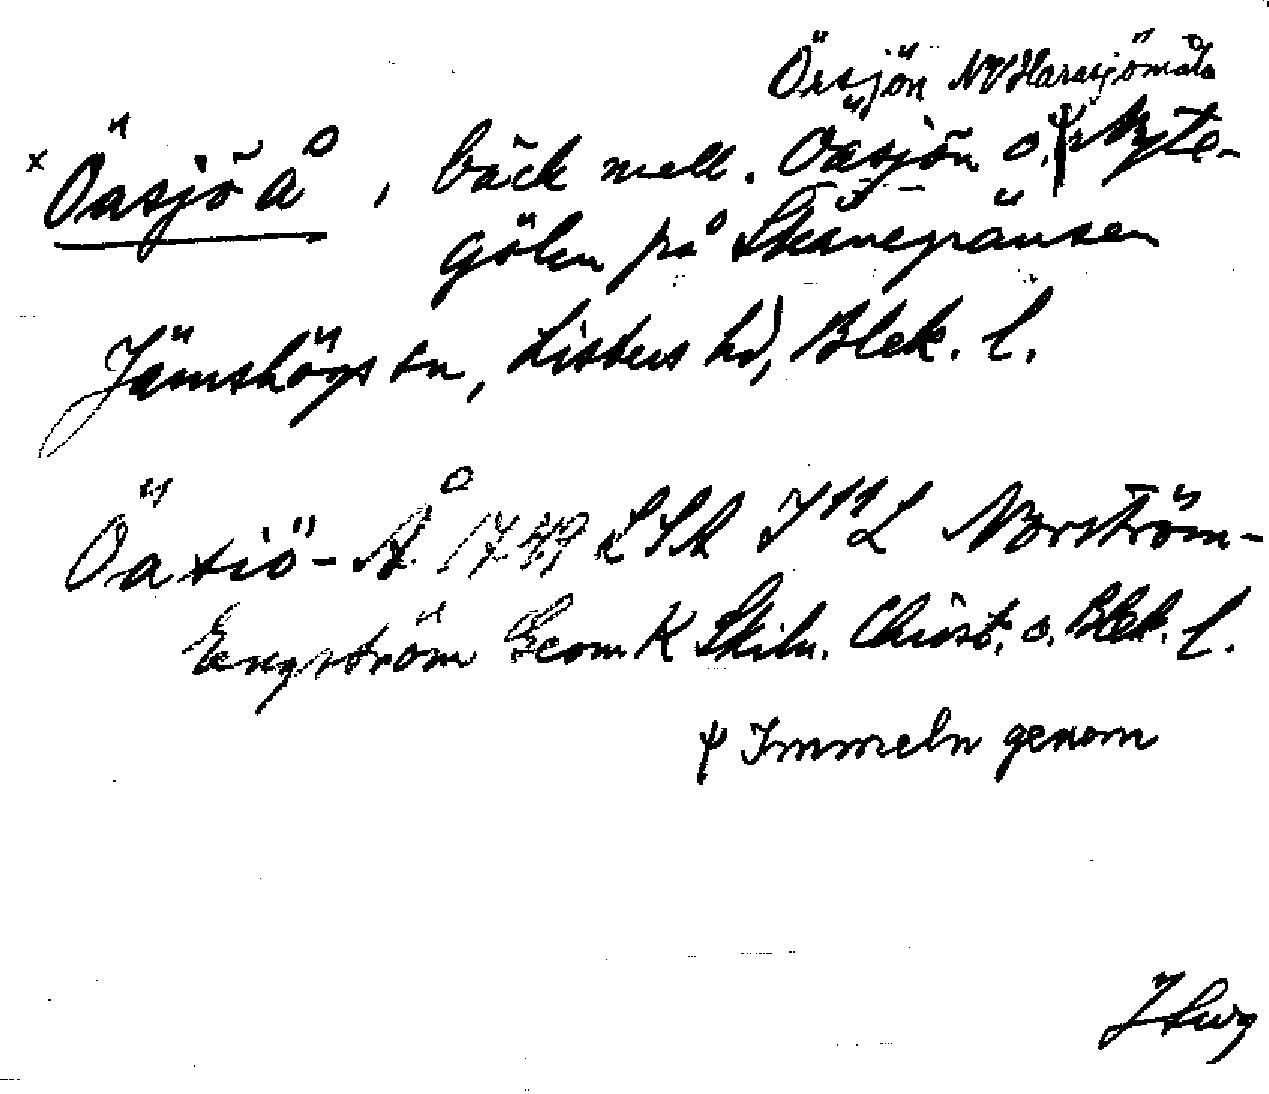 Örsjön NV Harasjömåla
x Öasjö å, bäck mell. Öasjön o. ψ Nyte-
gölen på Skånegränsen
Jämshögs sn, Listers hd, Blek. l.
Öasiö-Å 1749 LSA I L Norström-
Engström Geom K Skiln. Christ. o. Blek. l.
ψ Immeln genom